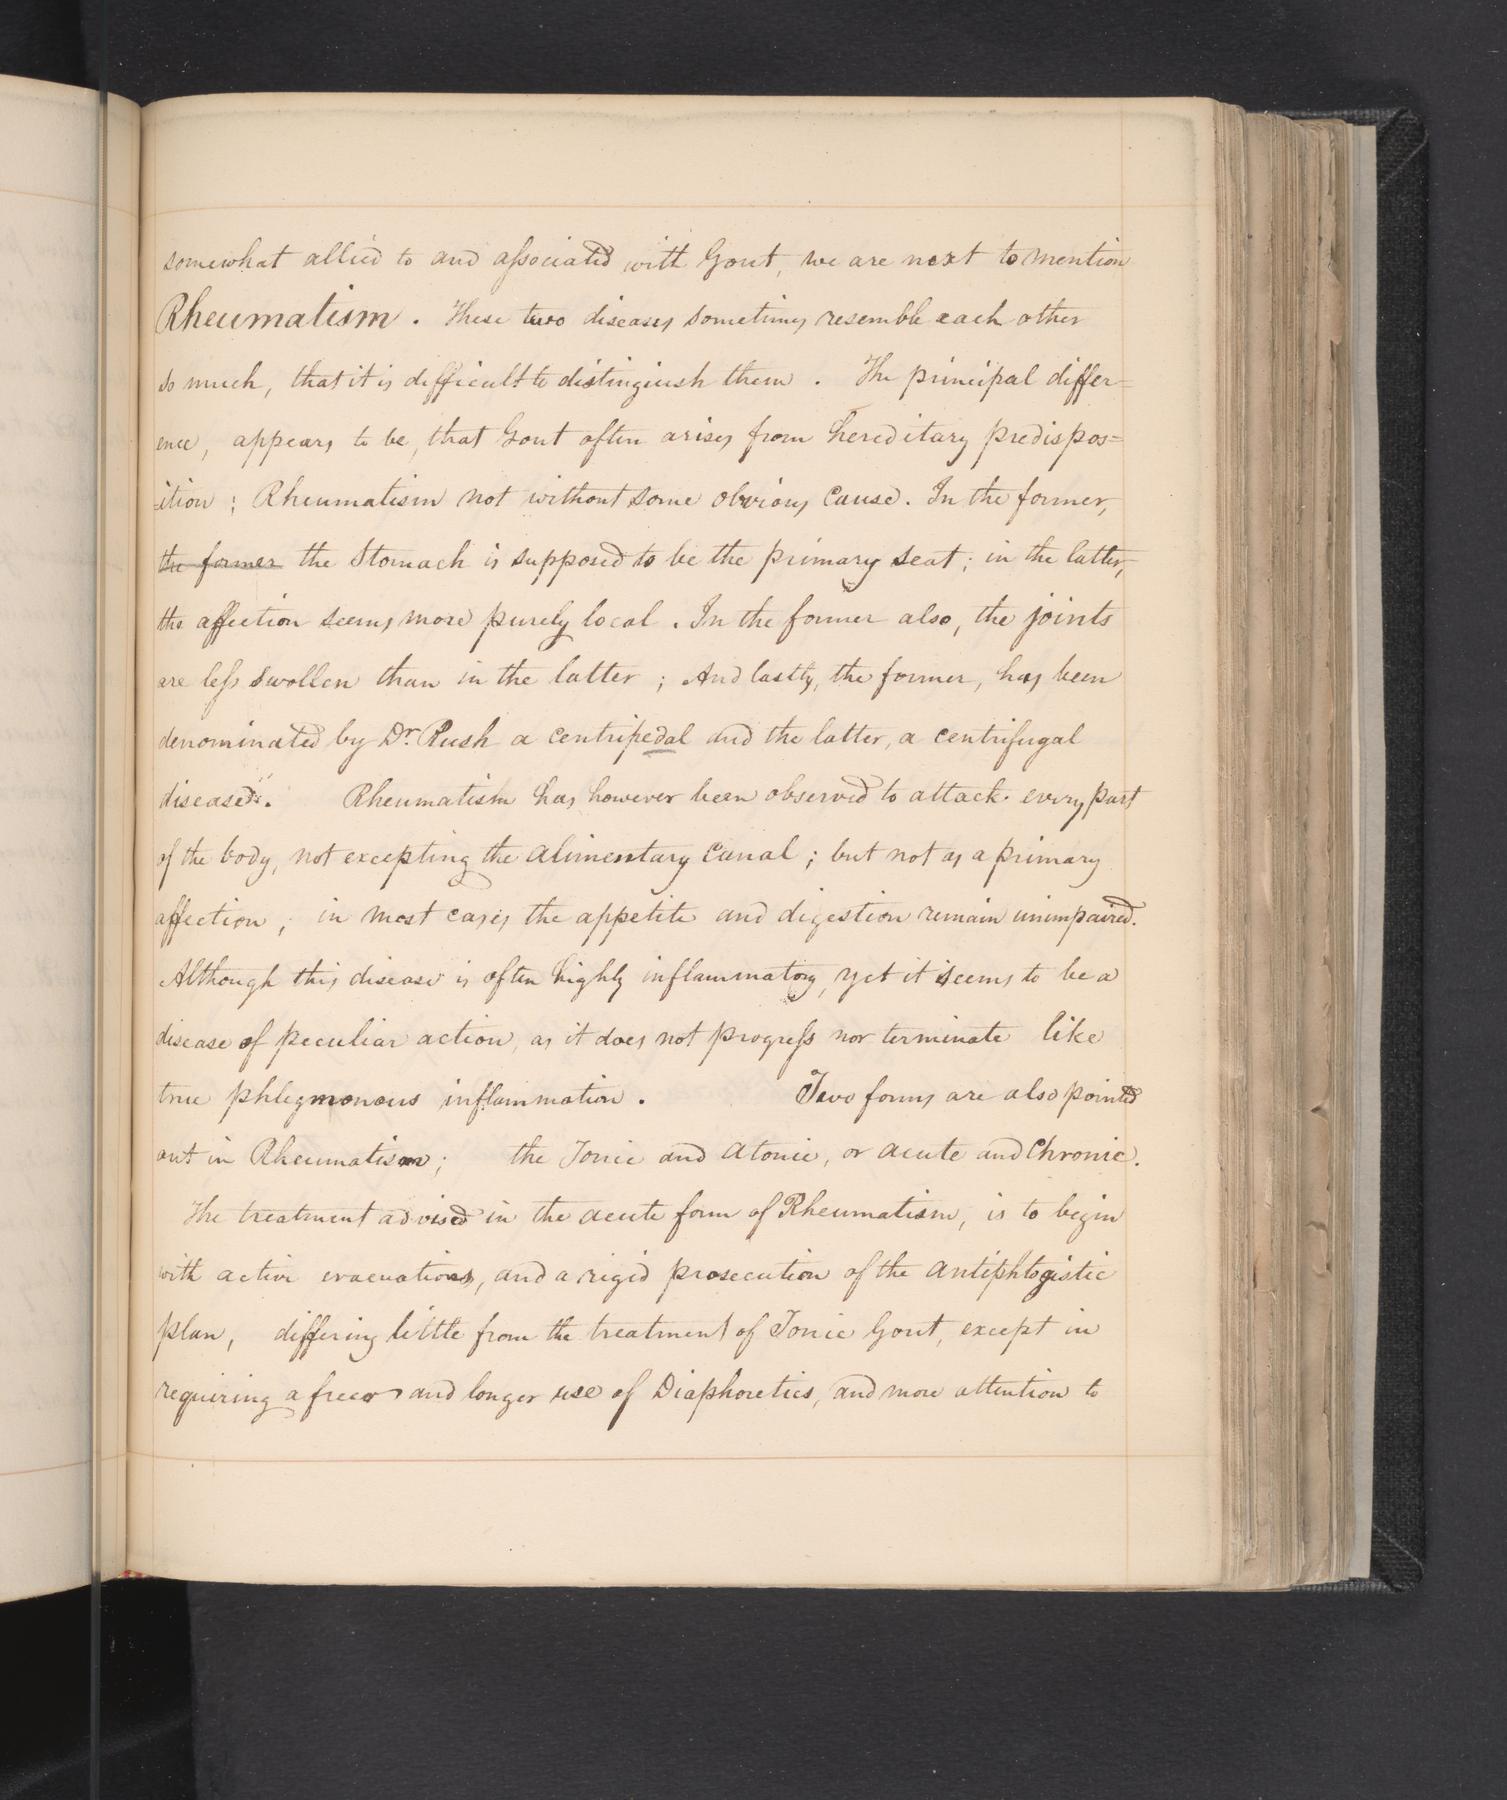 somewhat allied to and associated with Gout, we are next to mention
Rheumatism. These two diseases sometimes resemble each other
so much, that it is difficult to distinguish them. The principal differ=
ence, appears to be, that Gout often arises from hereditary predispos=
=ition; Rheumatism not without some obvious cause. In the former,
the former the Stomach is supposed to be the primary seat; in the latter,
the affection seems more purely local. In the former also, the joints
are less swollen than in the latter; And lastly, the former, has been
denominated by Dr. Rush a centripedal and the latter, a centrifugal
disease. Rheumatism has however been observed to attack every part
of the body, not excepting the alimentary Canal; but not as a primary
affection; in most cases the appetite and digestion remain unimpaired.
Although this disease is often highly inflammatory, yet it seems to be a
disease of peculiar action, as it does not progress nor terminate like
true phlegmonous inflammation. Two forms are also pointed
out in Rheumatism; the Tonic and Atonic, or acute and Chronic.
The treatment advised in the acute form of Rheumatism, is to begin
with active evacuations, and a rigid prosecution of the Antiphlogistic
plan, differing little from the treatment of Tonic Gout, except in
requiring a freer and longer use of Diaphoretics, and more attention to